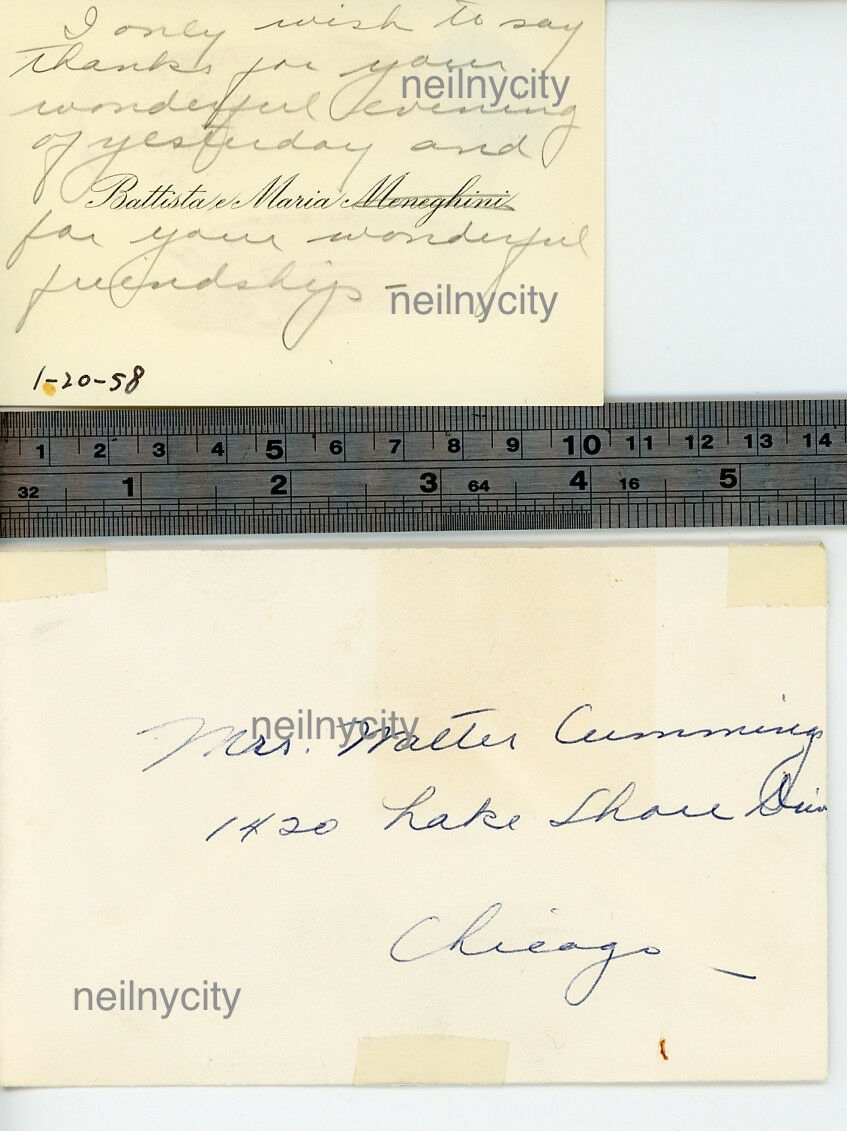 I only wish to say
thanks for your
neilnycity
wonderful evening
of yesterday and
Battista e Maria Meneghini
for your wonderful
friendship -
neilnycity
1-20-58
1 2 3 4 5 6 7 8 9 10 11 12 13 14
32 1 2 3 64 4 16 5
Mrs. Walter Cummings
neilnycity
1420 Lake Shore Driv
Chicago
neilnycity